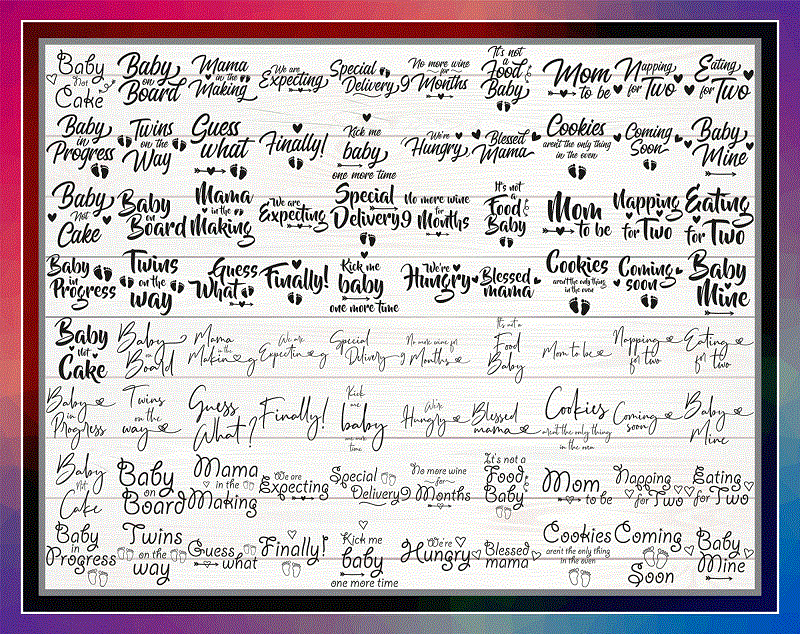 Baby
Not
Cake
Baby
on
Board
Mama
in the
Making
We are
Expecting
Special
Delivery
No more wine
for
9 Months
It's not
a
Food
Baby
Mom
to be
Napping
for Two
Eating
for Two
Baby
in
Progress
Twins
on the
Way
Guess
what
Finally!
Kick me
baby
one more time
We're
Hungry
Blessed
Mama
Cookies
aren't the only thing
in the oven
Coming
Soon
Baby
Mine
Baby
Not
Cake
Baby
on
Board
Mama
in the
Making
We are
Expecting
Special
Delivery
No more wine
for
9 Months
It's not
a
Food
Baby
Mom
to be
Napping
for Two
Eating
for Two
Baby
in
Progress
Twins
on the
way
Guess
What
Finally!
Kick me
baby
one more time
We're
Hungry
Blessed
mama
Cookies
aren't the only thing
in the oven
Coming
soon
Baby
Mine
Baby
not
Cake
Baby
on
Board
Mama
in the
Making
We are
Expecting
Special
Delivery
No more wine for
9 Months
It's not a
Food
Baby
Mom to be
Napping
for two
Eating
for two
Baby
in
Progress
Twins
on the
way
Guess
What?
Finally!
Kick
me
baby
one more
time
We're
Hungry
Blessed
mama
Cookies
arent the only thing
in the oven
Coming
soon
Baby
Mine
Baby
Not
Cake
Baby
on
Board
Mama
in the
Making
We are
Expecting
Special
Delivery
No more wine
for
9 Months
It's not a
Food
Baby
Mom
to be
Napping
for Two
Eating
for Two
Baby
in
Progress
Twins
on the
way
Guess
what
Finally!
Kick me
baby
one more time
We're
Hungry
Blessed
mama
Cookies
aren't the only thing
in the oven
Coming
Soon
Baby
Mine